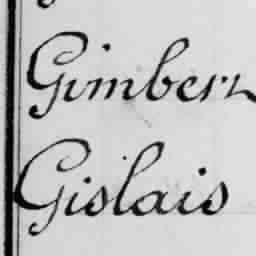 Gimbert
Gislais